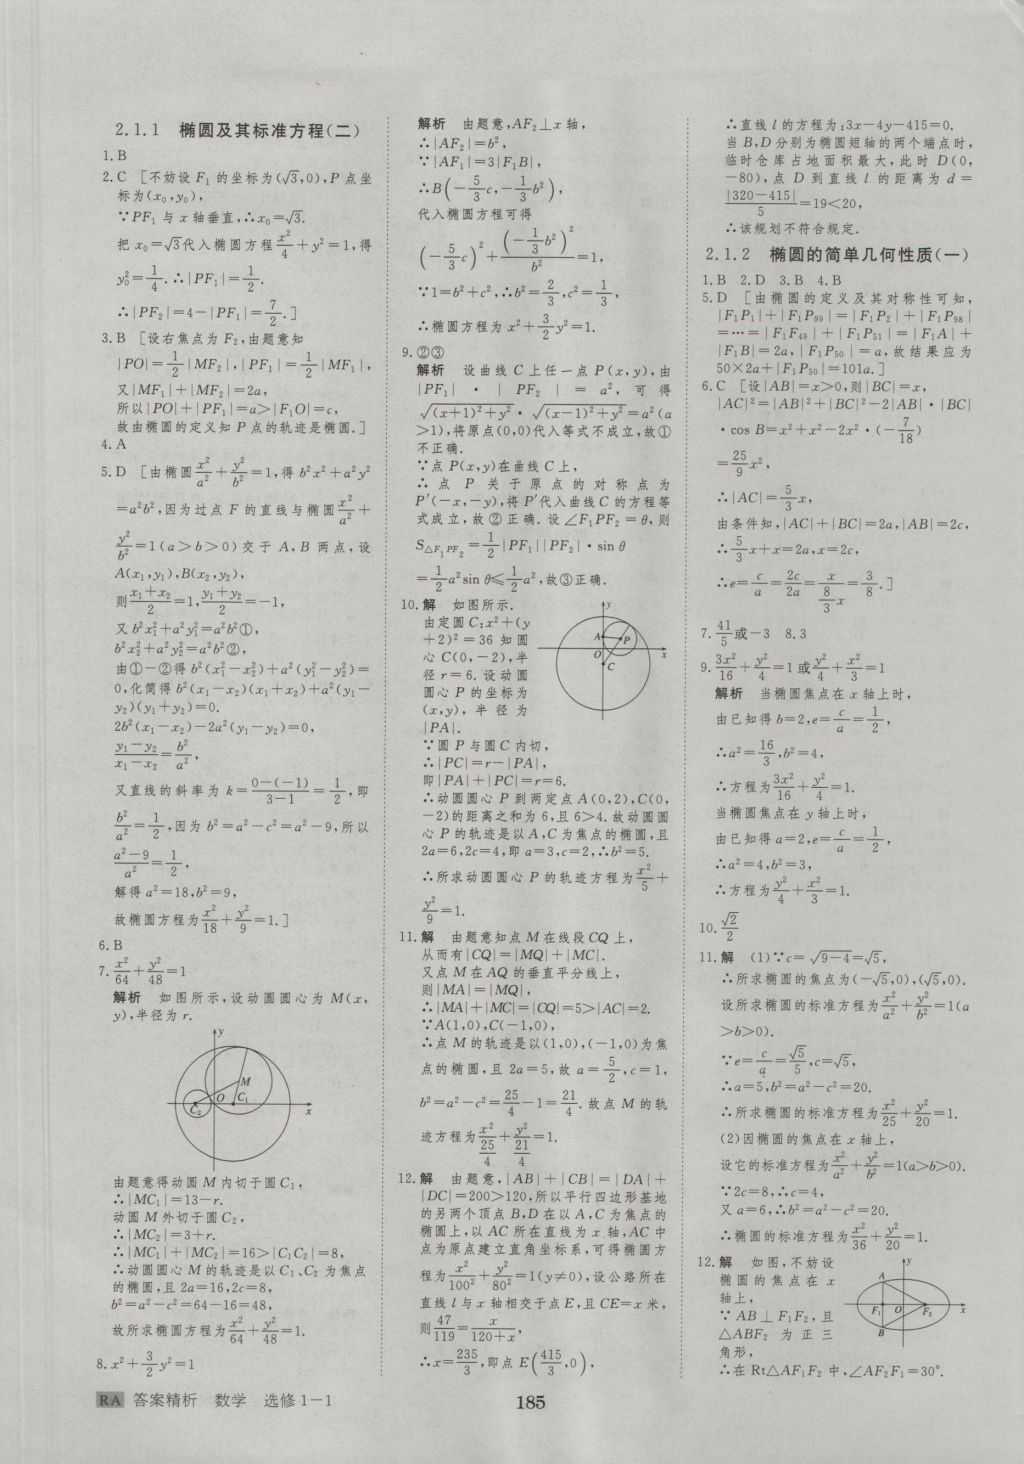 2.1.1 椭圆及其标准方程(二)
1.B
2.C [不妨设F₁的坐标为(√3,0),P点坐
标为(x₀,y₀),
∵PF₁与x轴垂直,∴x₀=√3.
把x₀=√3代入椭圆方程x²/4+y²=1,得
y₀²=1/4.∴|PF₁|=1/2.
∴|PF₂|=4-|PF₁|=7/2.]
3.B [设右焦点为F₂,由题意知
|PO|=1/2|MF₂|,|PF₁|=1/2|MF₁|,
又|MF₁|+|MF₂|=2a,
所以|PO|+|PF₁|=a>|F₁O|=c,
故由椭圆的定义知P点的轨迹是椭圆.]
4.A
5.D [由椭圆x²/a²+y²/b²=1,得b²x²+a²y²
=a²b²,因为过点F的直线与椭圆x²/a²+
y²/b²=1(a>b>0)交于A,B两点,设
A(x₁,y₁),B(x₂,y₂),
则(x₁+x₂)/2=1,(y₁+y₂)/2=-1,
又b²x₁²+a²y₁²=a²b²①,
b²x₂²+a²y₂²=a²b²②,
由①-②得b²(x₁²-x₂²)+a²(y₁²-y₂²)=
0,化简得b²(x₁-x₂)(x₁+x₂)+a²(y₁-
y₂)(y₁+y₂)=0.
2b²(x₁-x₂)-2a²(y₁-y₂)=0,
(y₁-y₂)/(x₁-x₂)=b²/a²,
又直线的斜率为k=(0-(-1))/(3-1)=1/2,即
b²/a²=1/2,因为b²=a²-c²=a²-9,所以
(a²-9)/a²=1/2,
解得a²=18,b²=9,
故椭圆方程为x²/18+y²/9=1.]
6.B
7.x²/64+y²/48=1
解析 如图所示,设动圆圆心为M(x,
y),半径为r.
y
M
O C₁
C₂
x
由题意得动圆M内切于圆C₁,
∴|MC₁|=13-r.
动圆M外切于圆C₂,
∴|MC₂|=3+r.
∴|MC₁|+|MC₂|=16>|C₁C₂|=8,
∴动圆圆心M的轨迹是以C₁、C₂为焦点
的椭圆,且2a=16,2c=8,
b²=a²-c²=64-16=48,
故所求椭圆方程为x²/64+y²/48=1.
8.x²+3/2y²=1
解析 由题意,AF₂⊥x轴,
∴|AF₂|=b²,
∵|AF₁|=3|F₁B|,
∴B(-5/3c,-1/3b²),
代入椭圆方程可得
(-5/3c)²+(-1/3b²)²/b²=1,
∵1=b²+c²,∴b²=2/3,c²=1/3,
∴椭圆方程为x²+3/2y²=1.
9.②③
解析 设曲线C上任一点P(x,y),由
|PF₁|·|PF₂|=a²,可得
√((x+1)²+y²)·√((x-1)²+y²)=a²(a
>1),将原点(0,0)代入等式不成立,故①
不正确.
∵点P(x,y)在曲线C上,
∴点P关于原点的对称点为
P′(-x,-y),将P′代入曲线C的方程等
式成立,故②正确.设∠F₁PF₂=θ,则
S△F₁PF₂=1/2|PF₁||PF₂|·sin θ
=1/2a²sin θ≤1/2a²,故③正确.
10.解 如图所示.
由定圆C:x²+(y
+2)²=36知圆
心C(0,-2),半
径r=6.设动圆
圆心P的坐标为
(x,y),半径为
|PA|.
y
A P
O x
C
∵圆P与圆C内切,
∴|PC|=r-|PA|,
即|PA|+|PC|=r=6.
∴动圆圆心P到两定点A(0,2),C(0,
-2)的距离之和为6,且6>4.故动圆圆
心P的轨迹是以A,C为焦点的椭圆,且
2a=6,2c=4,即a=3,c=2,∴b²=5.
∴所求动圆圆心P的轨迹方程为x²/5+
y²/9=1.
11.解 由题意知点M在线段CQ上,
从而有|CQ|=|MQ|+|MC|.
又点M在AQ的垂直平分线上,
则|MA|=|MQ|,
∴|MA|+|MC|=|CQ|=5>|AC|=2.
∵A(1,0),C(-1,0),
∴点M的轨迹是以(1,0),(-1,0)为焦
点的椭圆,且2a=5,故a=5/2,c=1,
b²=a²-c²=25/4-1=21/4.故点M的轨
迹方程为x²/(25/4)+y²/(21/4)=1.
12.解 由题意,|AB|+|CB|=|DA|+
|DC|=200>120,所以平行四边形基地
的另两个顶点B,D在以A,C为焦点的
椭圆上,以AC所在直线为x轴,AC中
点为原点建立直角坐标系,可得椭圆方
程为x²/100²+y²/80²=1(y≠0),设公路所在
直线l与x轴相交于点E,且CE=x米,
则47/119=x/(120+x),
∴x=235/3,即点E(415/3,0),
∴直线l的方程为:3x-4y-415=0.
当B,D分别为椭圆短轴的两个端点时,
临时仓库占地面积最大,此时D(0,
-80),点D到直线l的距离为d=
|320-415|/5=19<20,
∴该规划不符合规定.
2.1.2 椭圆的简单几何性质(一)
1.B 2.D 3.B 4.B
5.D [由椭圆的定义及其对称性可知,
|F₁P₁|+|F₁P₉₉|=|F₁P₂|+|F₁P₉₈|
=…=|F₁F₄₉|+|F₁P₅₁|=|F₁A|+
|F₁B|=2a,|F₁P₅₀|=a,故结果应为
50×2a+|F₁P₅₀|=101a.]
6.C [设|AB|=x>0,则|BC|=x,
|AC|²=|AB|²+|BC|²-2|AB|·|BC|
·cos B=x²+x²-2x²·(-7/18)
=25/9x²,
∴|AC|=5/3x,
由条件知,|AC|+|BC|=2a,|AB|=2c,
∴5/3x+x=2a,x=2c,
∴e=c/a=2c/2a=x/(8/3x)=3/8.]
7.41/5或-3 8.3
9.3x²/16+y²/4=1或y²/4+x²/3=1
解析 当椭圆焦点在x轴上时,
由已知得b=2,e=c/a=1/2,
∴a²=16/3,b²=4,
∴方程为3x²/16+y²/4=1.
当椭圆焦点在y轴上时,
由已知得a=2,e=c/a=1/2,
∴a²=4,b²=3,
∴方程为y²/4+x²/3=1.
10.√2/2
11.解 (1)∵c=√(9-4)=√5,
∴所求椭圆的焦点为(-√5,0),(√5,0).
设所求椭圆的标准方程为x²/a²+y²/b²=1(a
>b>0).
∵e=c/a=√5/5,c=√5,
∴a=5,b²=a²-c²=20.
∴所求椭圆的标准方程为x²/25+y²/20=1.
(2)因椭圆的焦点在x轴上,
设它的标准方程为x²/a²+y²/b²=1(a>b>0).
∵2c=8,∴c=4,
又a=6,∴b²=a²-c²=20.
∴椭圆的标准方程为x²/36+y²/20=1.
12.解 如图,不妨设
椭圆的焦点在x
轴上,
∵AB⊥F₁F₂,且
△ABF₂为正三
角形,
y
A
F₁ O F₂ x
B
∴在Rt△AF₁F₂中,∠AF₂F₁=30°.
RA 答案精析 数学 选修1-1
185